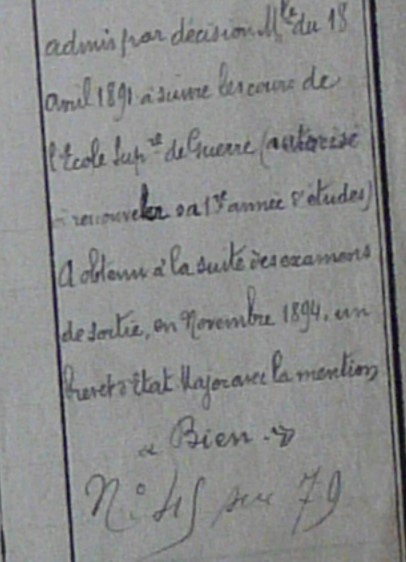 admis par décision Mlle du 18
avril 1891 à suivre les cours de
l'École Supre de Guerre (autorisé
à renouveler sa 1re année d'études)
A obtenu à la suite des examens
de sortie, en Novembre 1894, un
brevet d'État Major avec la mention
« Bien. »
N° 45 sur 79